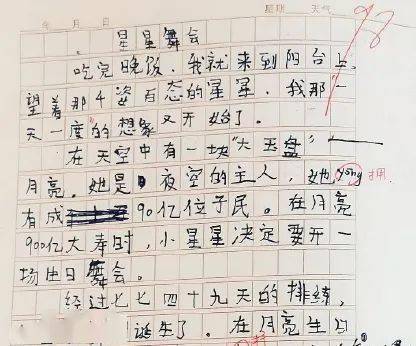 年 月 日 星期 天气
98
星星舞会
吃完晚饭,我就来到阳台上,
望着那千姿百态的星星,我那“一
天一度”的想象又开始了。
在天空中有一块“大玉盘”——
月亮。她是夜空的主人,她yǒng拥
有成90亿位子民。在月亮
900亿大寿时,小星星决定要开一
场生日舞会。
经过七七四十九天的排练,
诞生了。在月亮生日